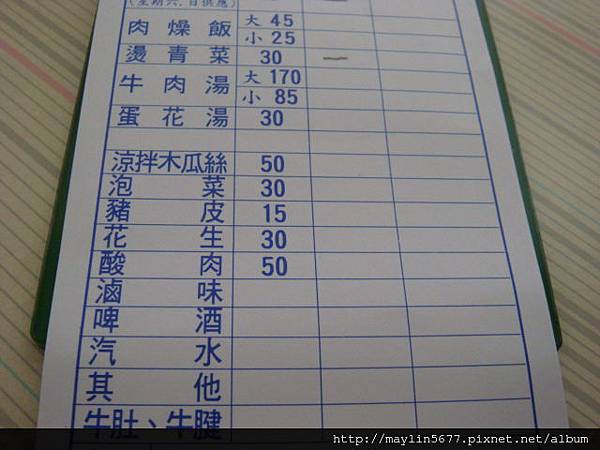 (星期六.日供應)
肉燥飯 大 45
小 25
燙青菜 30
牛肉湯 大 170
小 85
蛋花湯 30
涼拌木瓜絲 50
泡菜 30
豬皮 15
花生 30
酸肉 50
滷味
啤酒
汽水
其他
牛肚、牛腱
http://maylin5677.pixnet.net/album